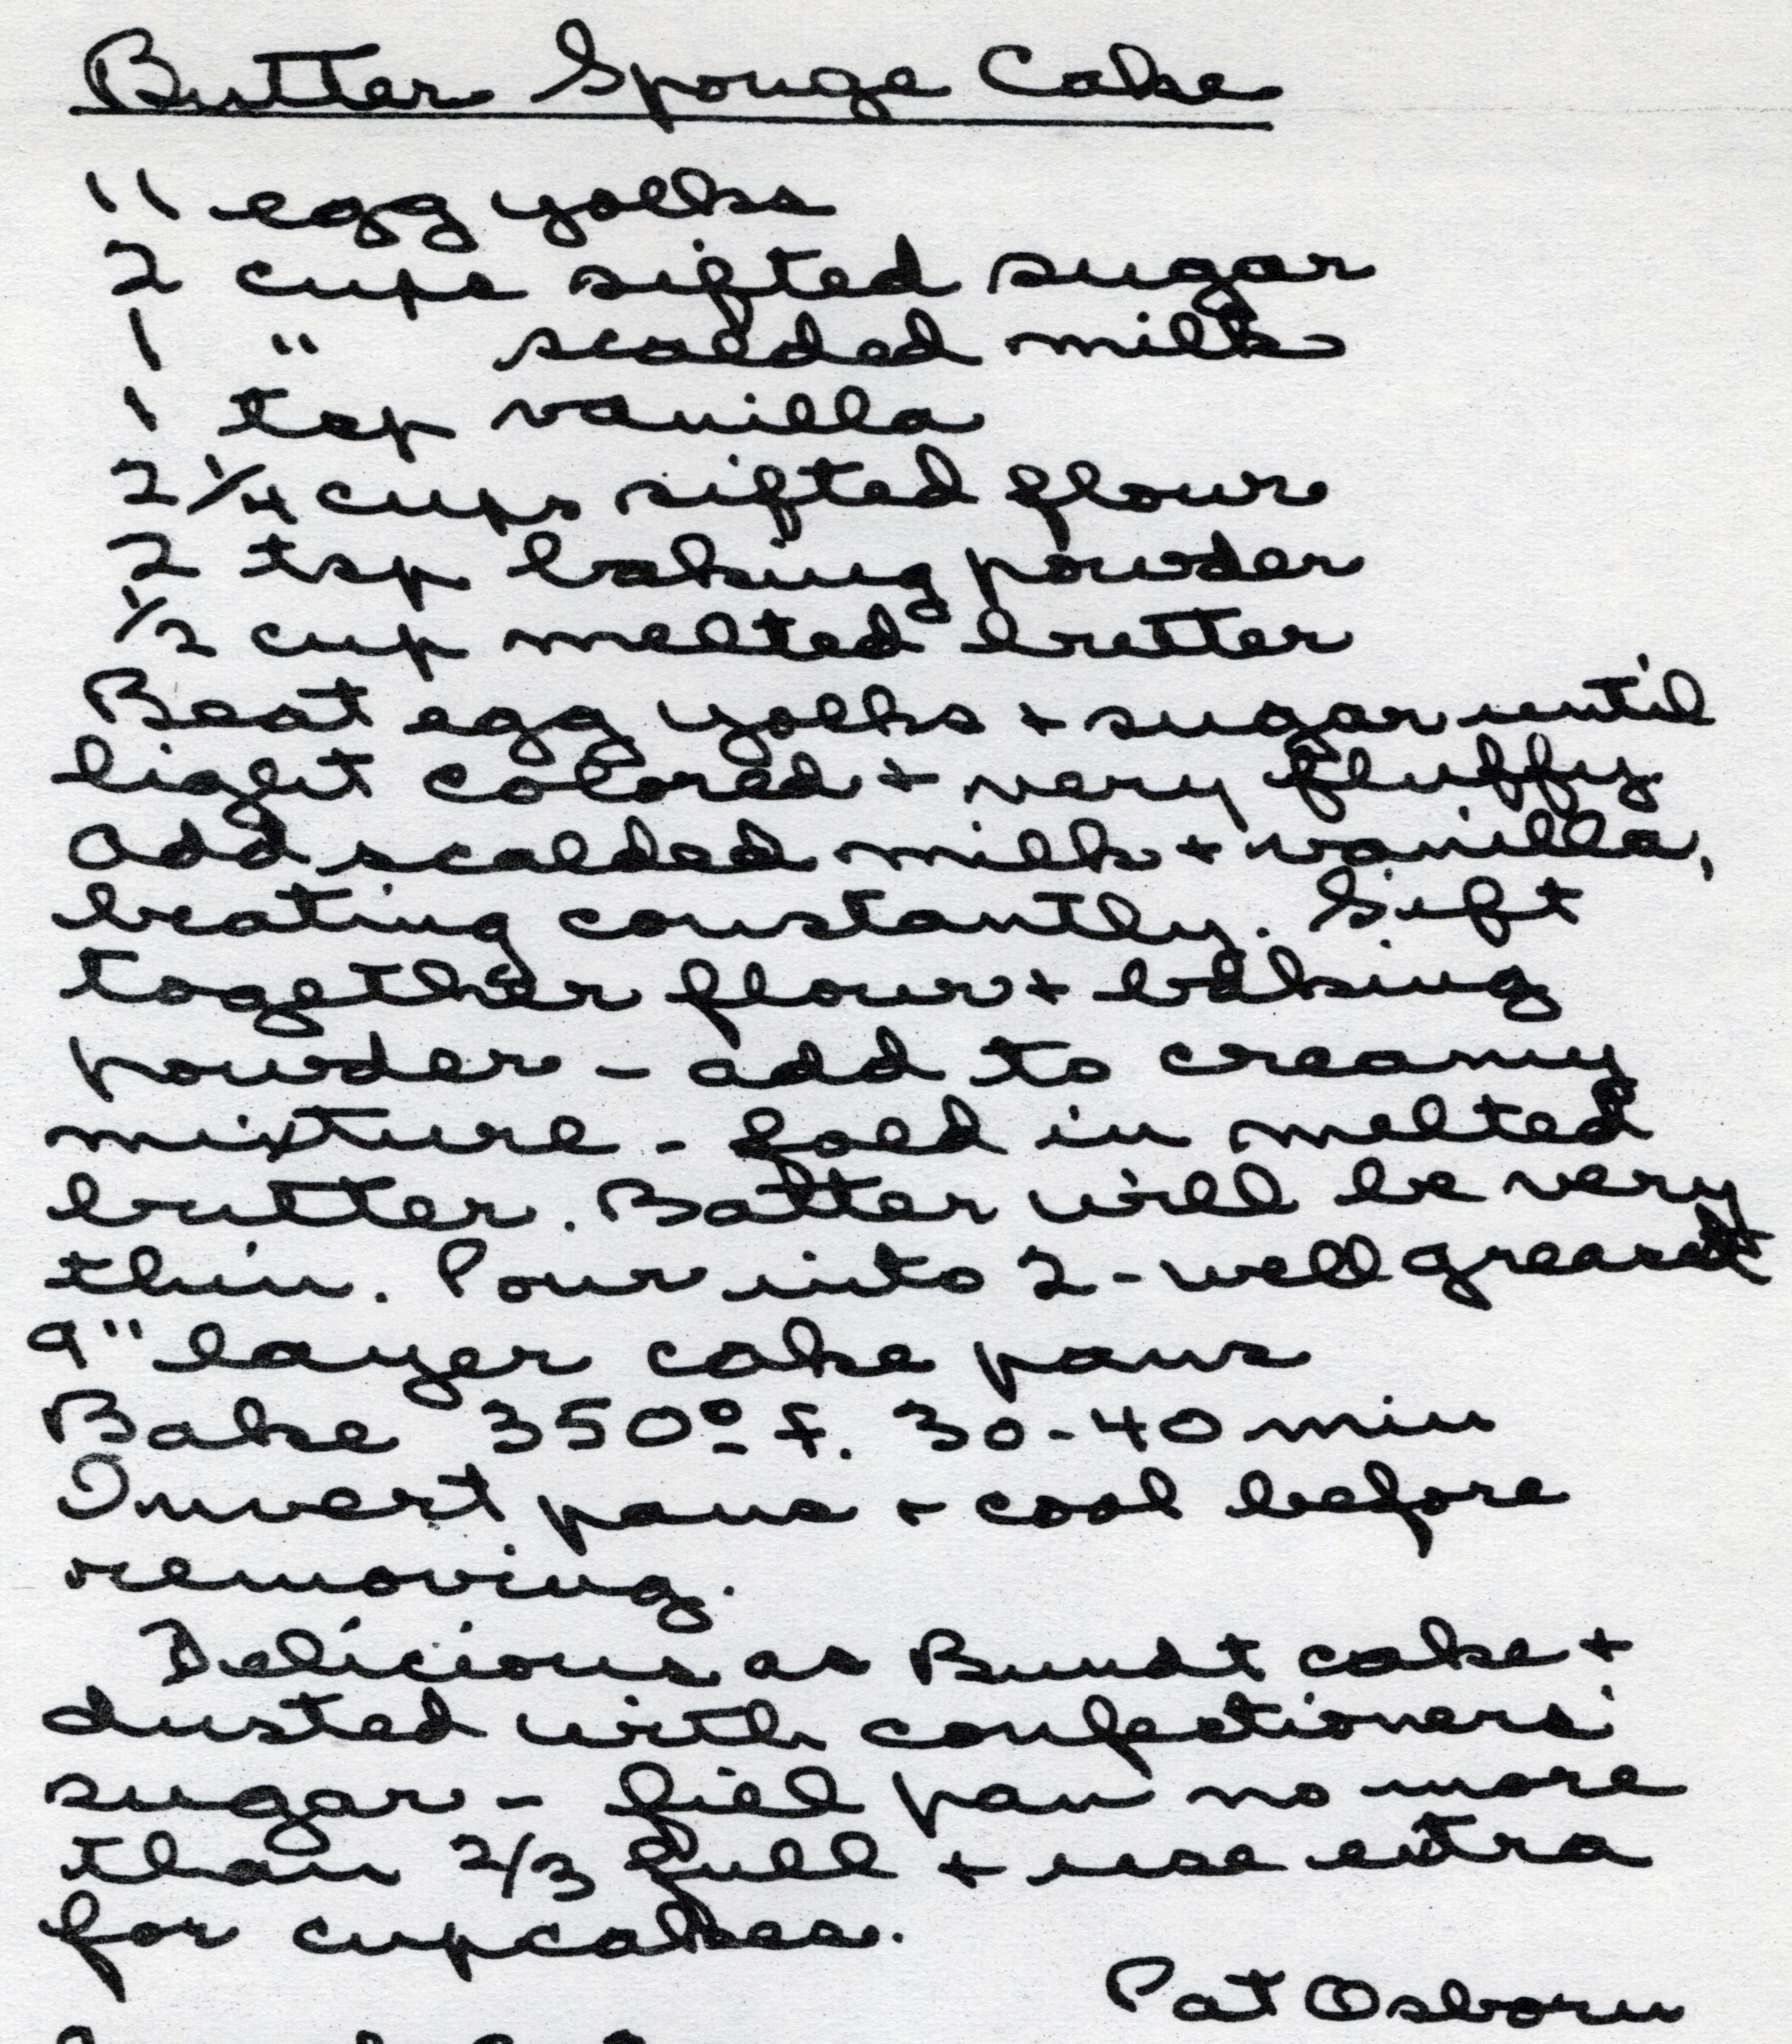 Butter Sponge Cake
11 egg yolks
2 cups sifted sugar
1 " scalded milk
1 tsp vanilla
2 1/4 cups sifted flour
2 tsp baking powder
1/2 cup melted butter
Beat egg yolks + sugar until
light colored + very fluffy
add scalded milk + vanilla,
beating constantly. Sift
together flour + baking
powder - add to creamy
mixture - fold in melted
butter. Batter will be very
thin. Pour into 2 - well greased
9" layer cake pans
Bake 350° f. 30-40 min
Invert pans + cool before
removing.
Delicious as Bundt cake +
dusted with confectioners'
sugar - fill pan no more
than 2/3 full + use extra
for cupcakes.
Pat Osborn